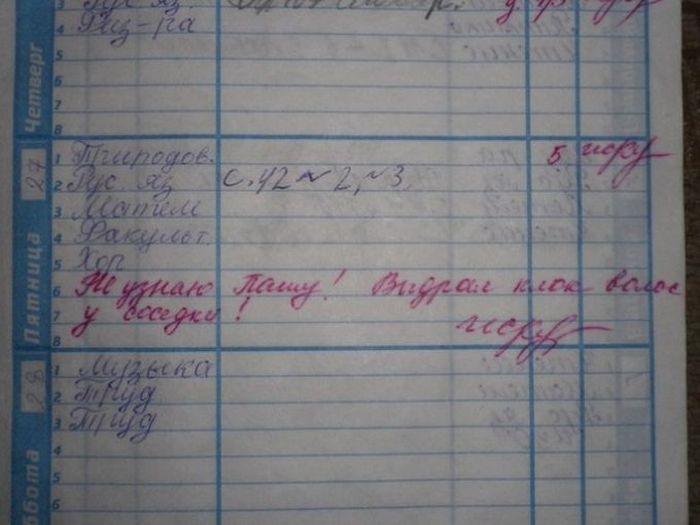 3 Рус. яз.
4 Физ-ра
5
6
7
8
Четверг
27
Пятница
1 Природов. 5
2 Рус. яз с. 42 № 2, № 3
3 Матем
4 Факульт.
5 Хор
6 Не узнаю Пашу! Выдрал клок волос
7 у соседки!
8
28
1 Музыка
2 Труд
3 Труд
4
5
6